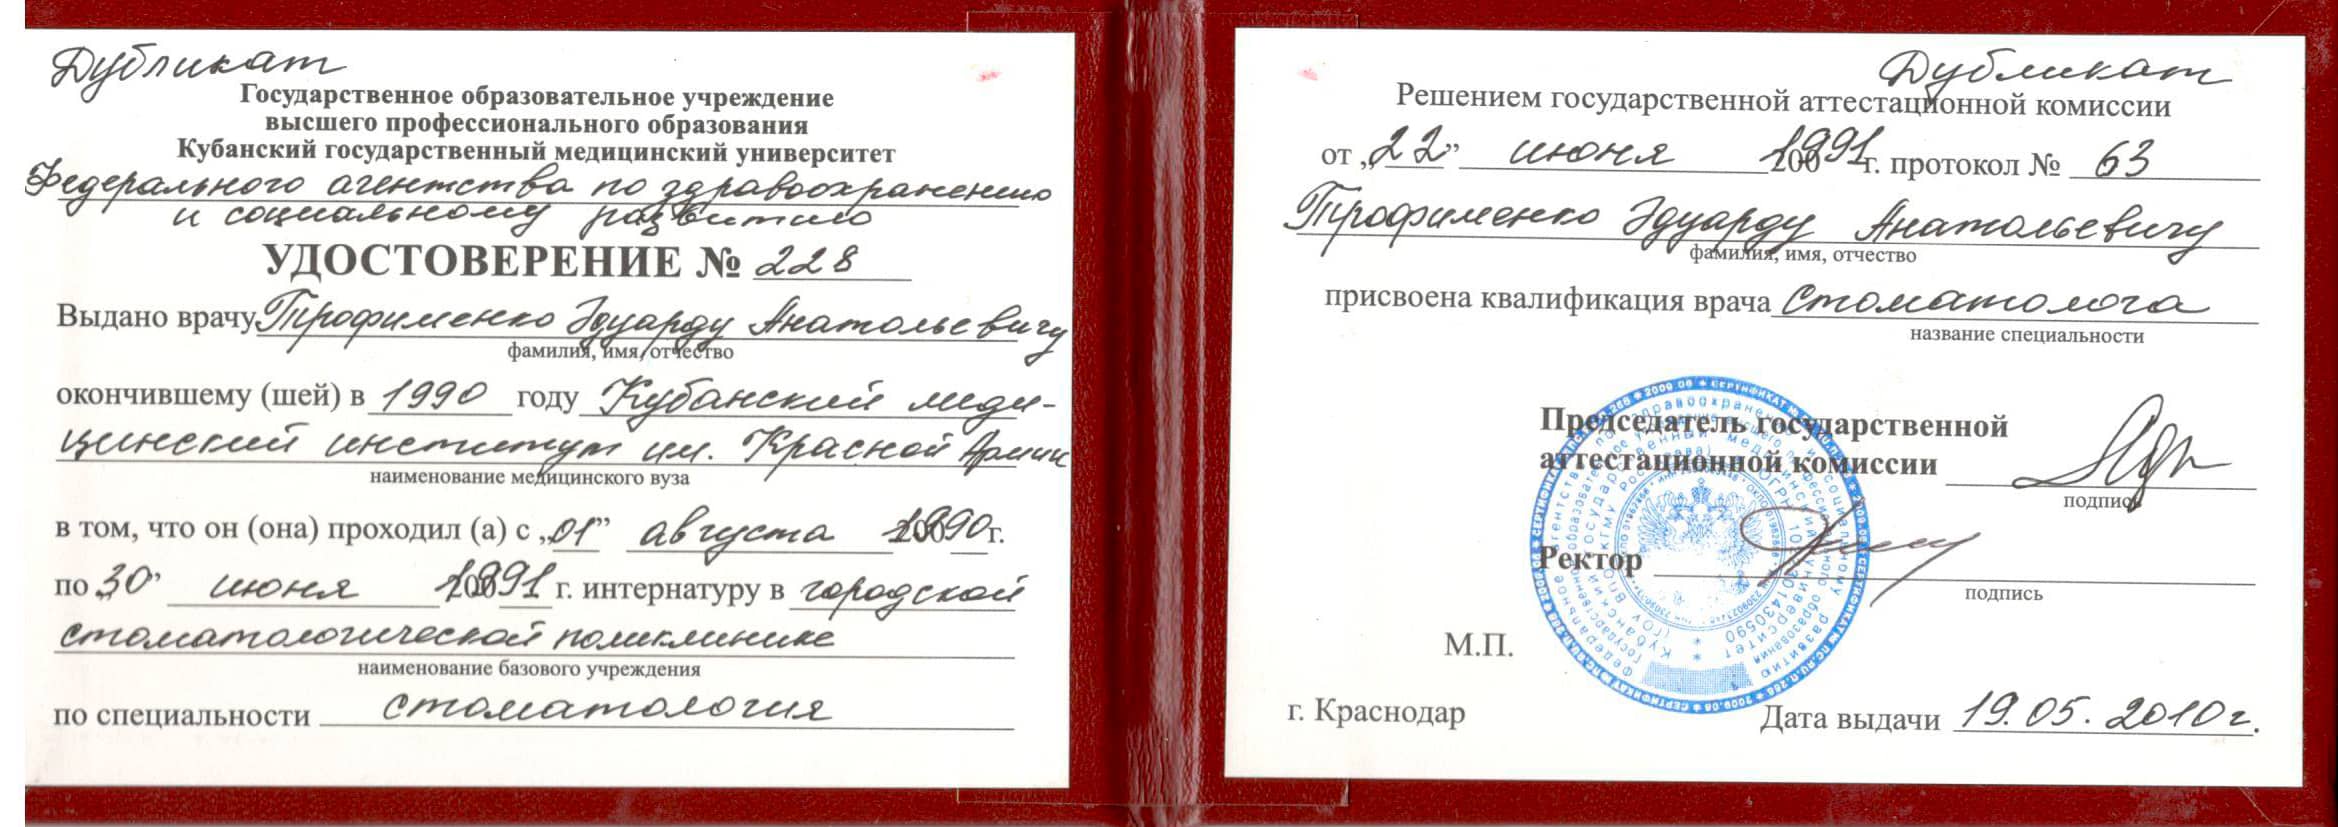 Дубликат
Государственное образовательное учреждение
высшего профессионального образования
Кубанский государственный медицинский университет
Федерального агентства по здравоохранению
и социальному развитию
УДОСТОВЕРЕНИЕ № 228
Выдано врачу Трофименко Эдуарду Анатольевичу
фамилия, имя, отчество
окончившему (шей) в 1990 году Кубанский меди-
цинский институт им. Красной Армии
наименование медицинского вуза
в том, что он (она) проходил (а) с „01” августа 1990 г.
по „30” июня 1991 г. интернатуру в городской
стоматологической поликлинике
наименование базового учреждения
по специальности стоматология
Дубликат
Решением государственной аттестационной комиссии
от „22” июня 1991 г. протокол № 63
Трофименко Эдуарду Анатольевичу
фамилия, имя, отчество
присвоена квалификация врача стоматолога
название специальности
Председатель государственной
аттестационной комиссии
подпись
Ректор
подпись
М.П.
г. Краснодар
Дата выдачи 19.05.2010г.